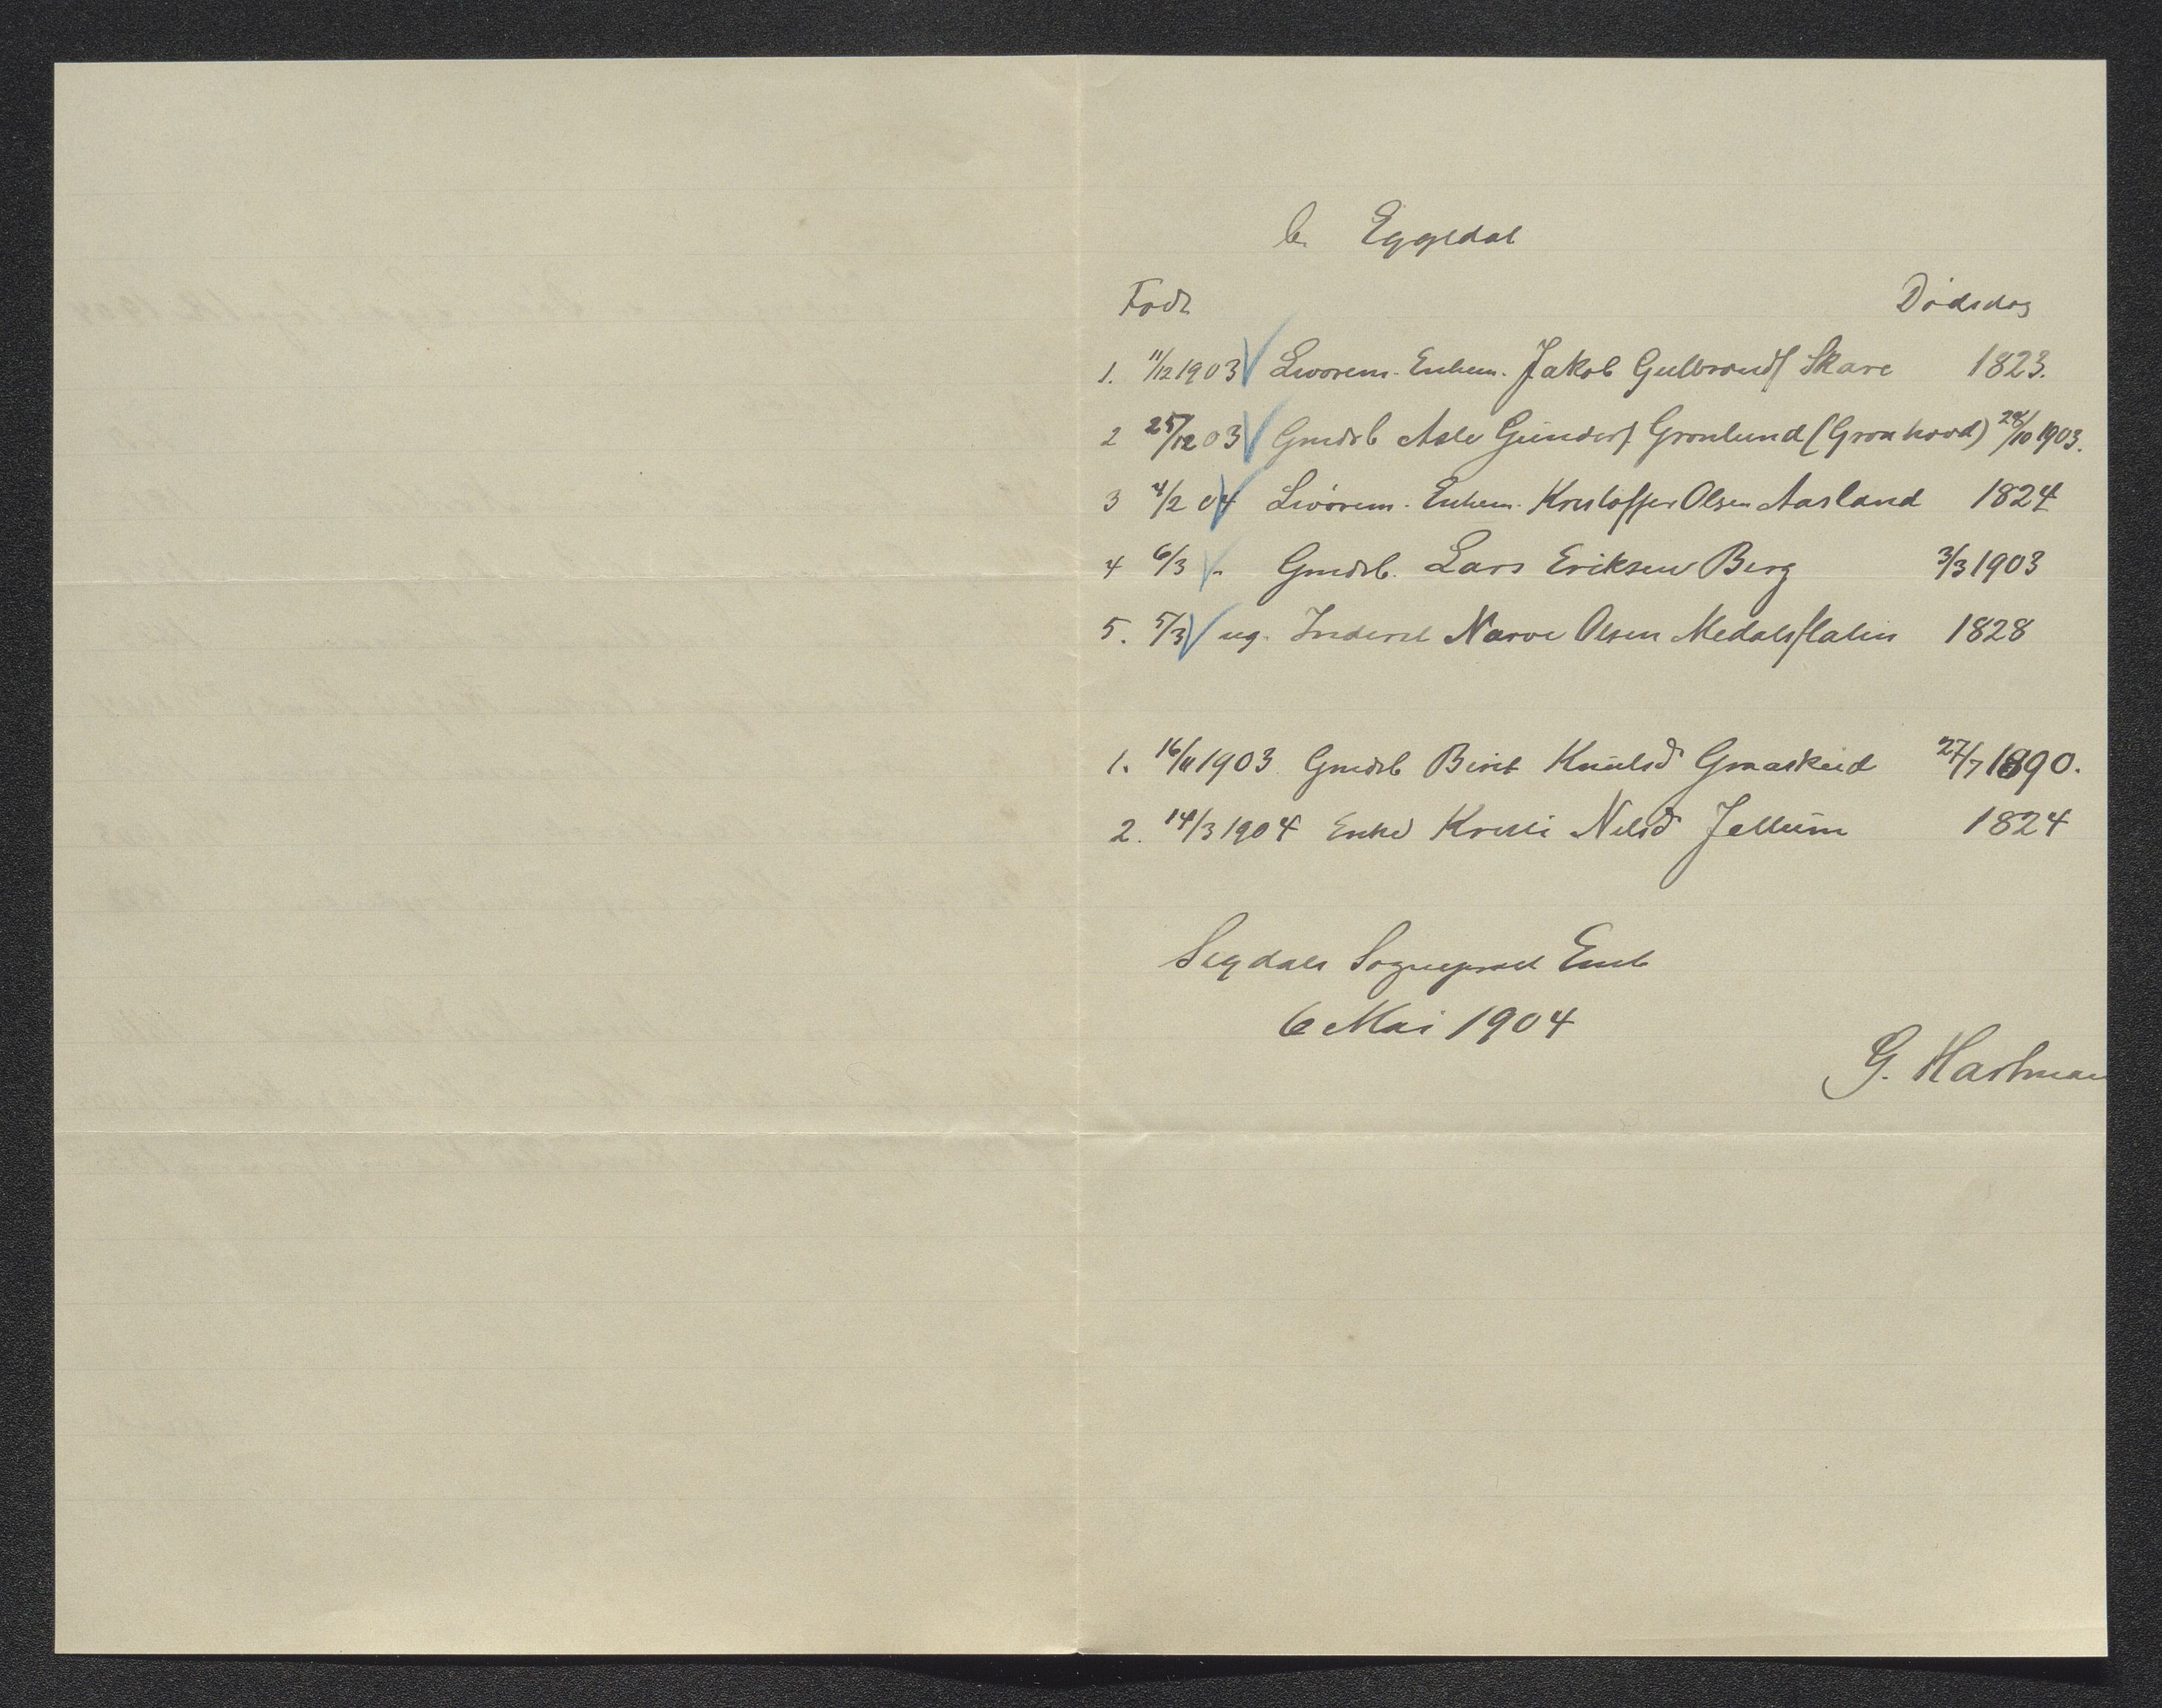 b. Eggedal
Født Dødsdag
1. 11/12 1903 Livørem. Enkem. Jakob Gulbrands. Skare 1823.
2 25/12 03 Gmdsb Asle Gunders. Grønlund (Grønhovd) 28/10 1903.
3 4/2 04 Livørem. Enkem. Kristoffer Olsen Aasland 1824
4 6/3 " Gmdsb. Lars Eriksen Berg 3/3 1903
5. 5/3 ug. Inderst Narve Olsen Medalsflaten 1828
1. 16/11 1903 Gmdsb Birit Knutsd 27/7 1890.
2. 14/3 1904 Enke Kristi Nilsd Jellum 1824
Sigdals Sogneprest Emb
6 Mai 1904
G. Hartman